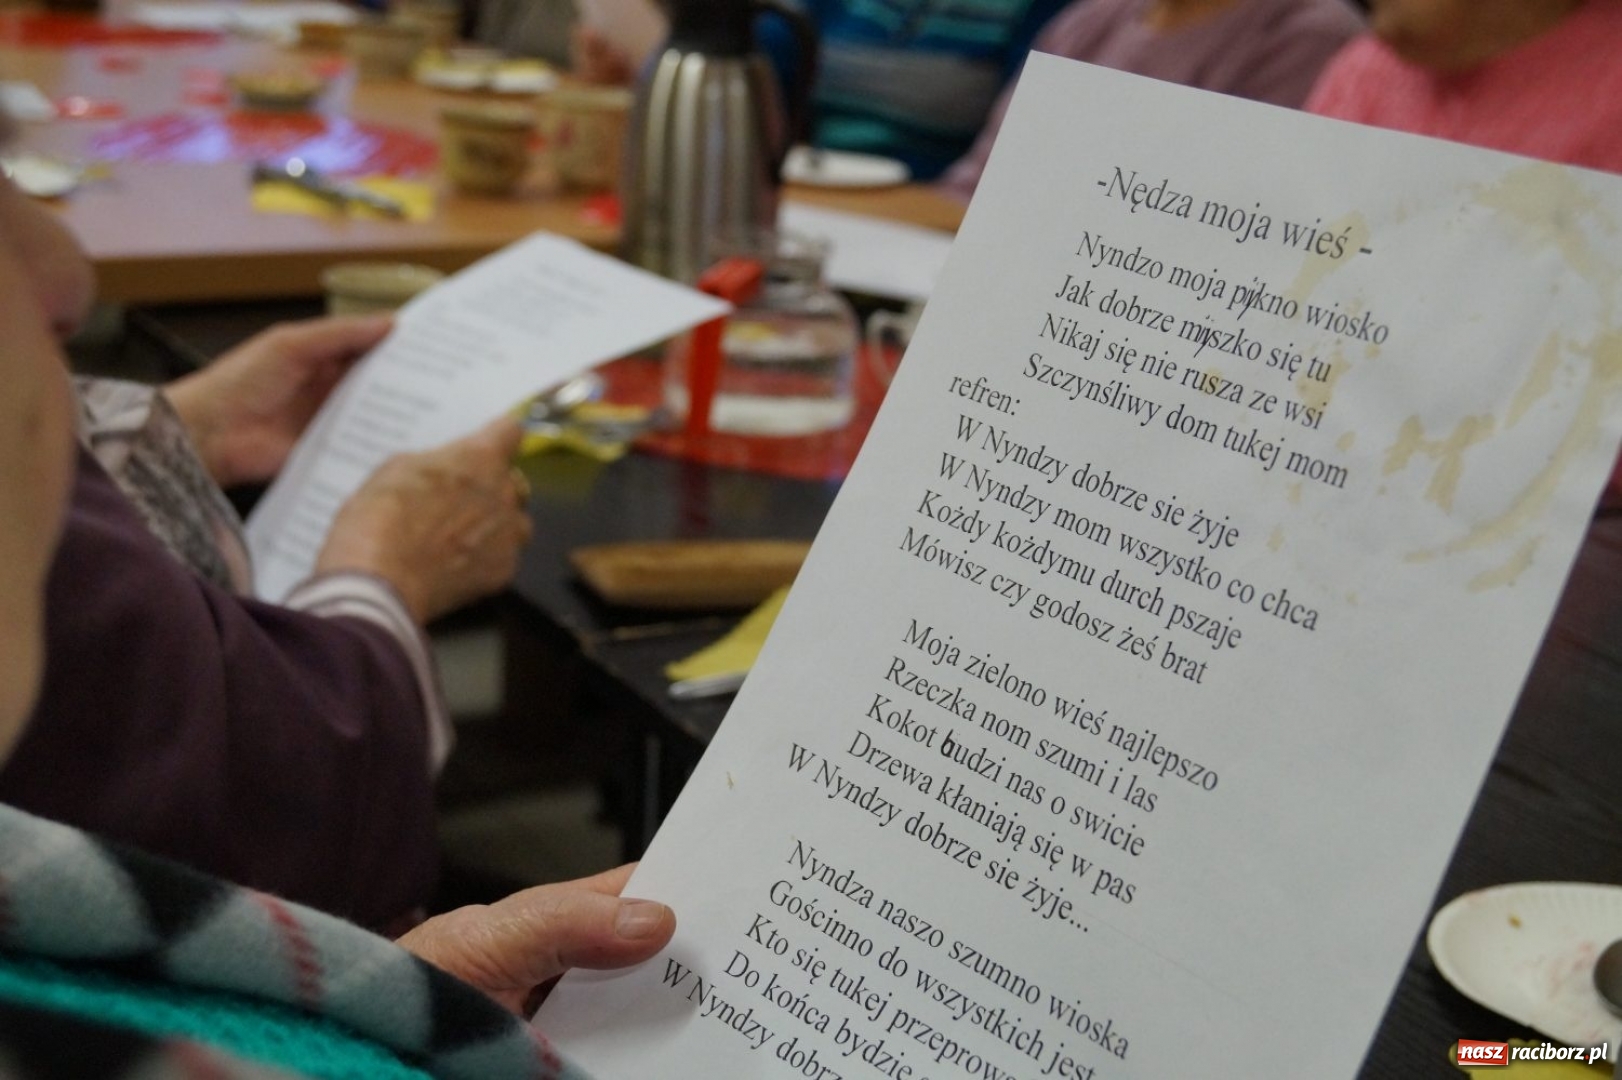 -Nędza moja wieś -
Nyndzo moja piykno wiosko
Jak dobrze miyszko się tu
Nikaj się nie rusza ze wsi
Szczynśliwy dom tukej mom
refren:
W Nyndzy dobrze sie żyje
W Nyndzy mom wszystko co chca
Kożdy kożdymu durch pszaje
Mówisz czy godosz żeś brat
Moja zielono wieś najlepszo
Rzeczka nom szumi i las
Kokot budzi nas o swicie
Drzewa kłaniają się w pas
W Nyndzy dobrze sie żyje...
Nyndza naszo szumno wioska
Gościnno do wszystkich jest
Kto się tukej przeprowa
Do końca bydzie
W Nyndzy dobrz
nasz raciborz.pl